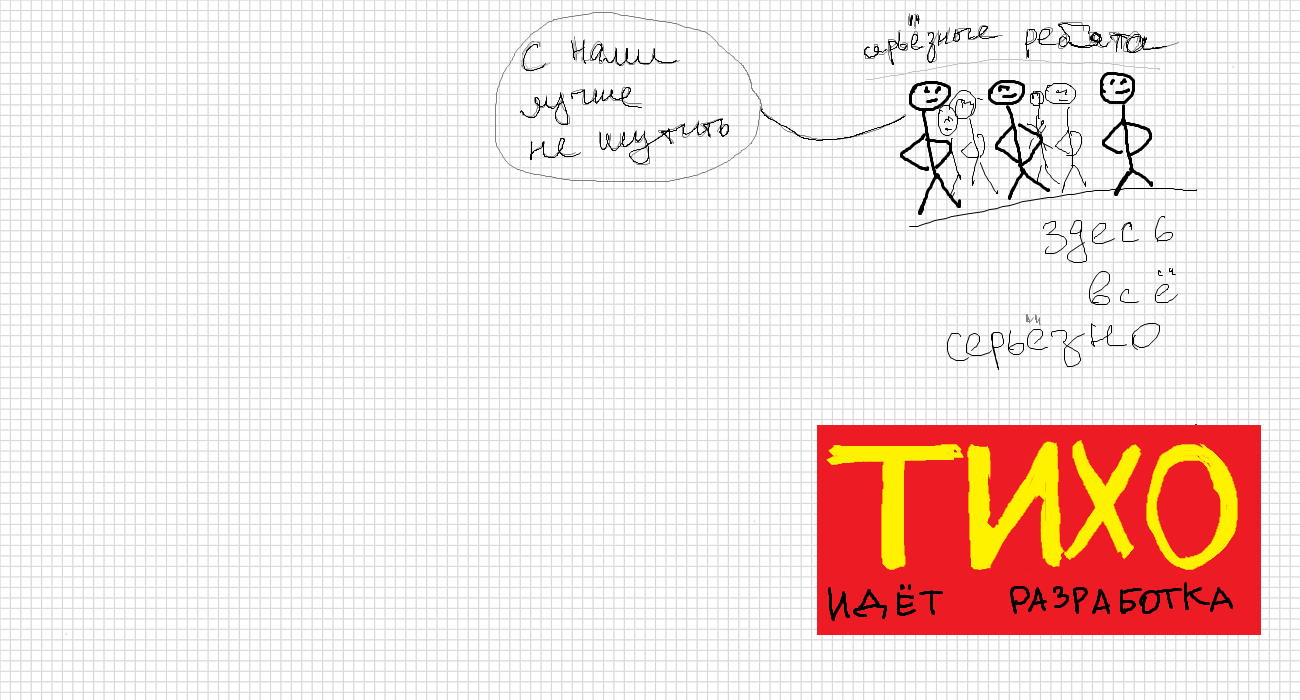 С нами
лучше
не шутить
серьёзные ребята
здесь
всё
серьёзно
ТИХО
ИДЁТ РАЗРАБОТКА